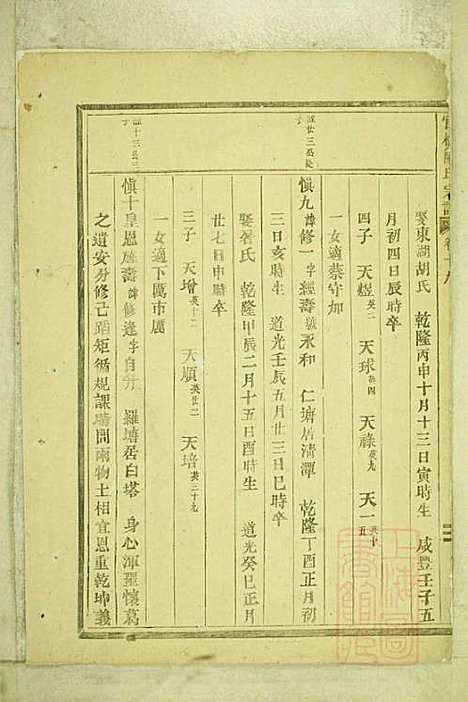 娶東湖胡氏 乾隆丙申十月十三日寅時生 咸豐壬子五
月初四日辰時卒
四子 天煜英二 天球英四 天祿英九 天一英十五
一女適蔡守加
慎九諱修一字經壽號永和 仁塘居清潭 乾隆丁酉正月初
三日亥時生 道光壬辰五月廿三日巳時卒
娶 氏 乾隆甲辰二月十五日酉時生 道光癸巳正月
廿七日申時卒
三子 天增英十二 天順英廿二 天培英三十九
一女適下厲市厲
慎十皇恩 壽諱修逢字自升 羅塘居白塔 身心渾羅懷葛
之遺安分修己蹈矩循規課晴問雨物士相宜恩重乾坤義